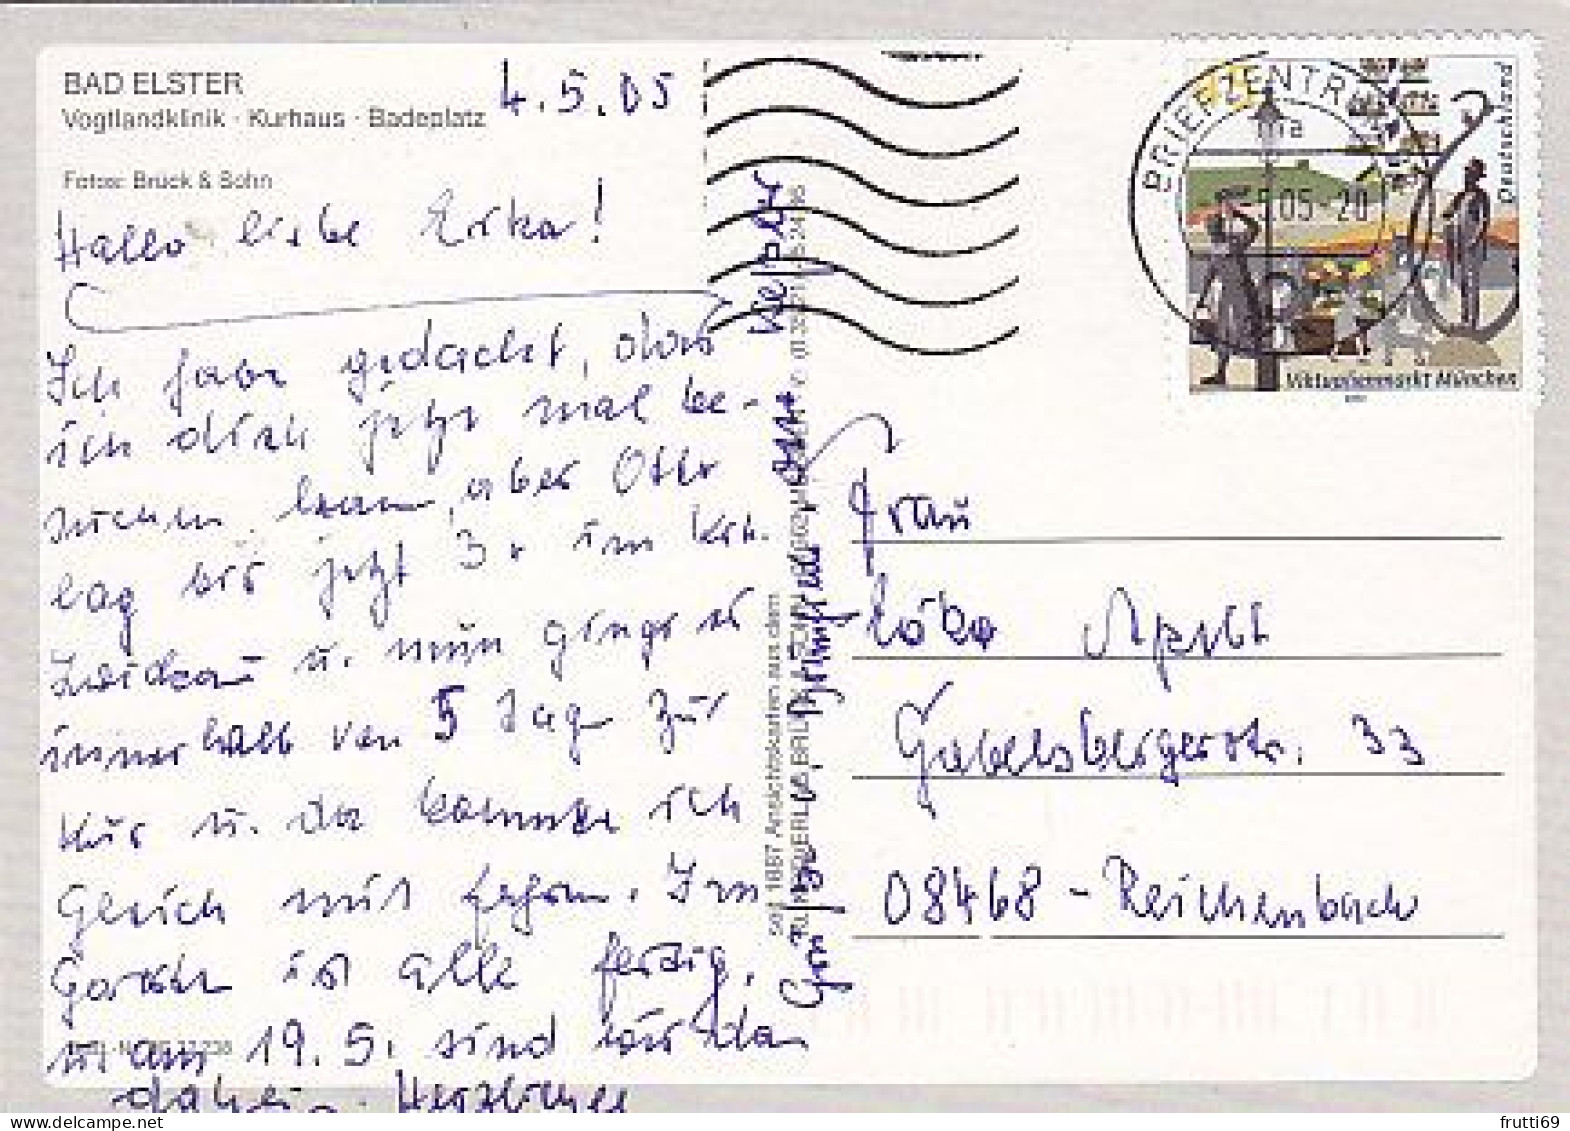 BAD ELSTER
Vogtlandklinik · Kurhaus · Badeplatz
4.5.05
Fotos: Brück & Sohn
Hallo liebe Erika!
Ich habe gedacht, das
ich dich jetzt mal be-
suchen kann, aber Otto
lag bis jetzt 3 in
Zwickau u. nun ging es
innerhalb von 5 Tage zur
Kur u. da komme ich
gleich mit fahren. Im
Garten ist alle fertig,
u am 19.5. sind wir da
daheim. Herzliche
Grüße
seit 1887 Ansichtskarten aus dem
BRIEFZENTRUM
5.05-20
Deutschland
Viktualienmarkt München
Frau
Erika
Gabelsbergerstr. 33
08468 - Reichenbach
frutti69